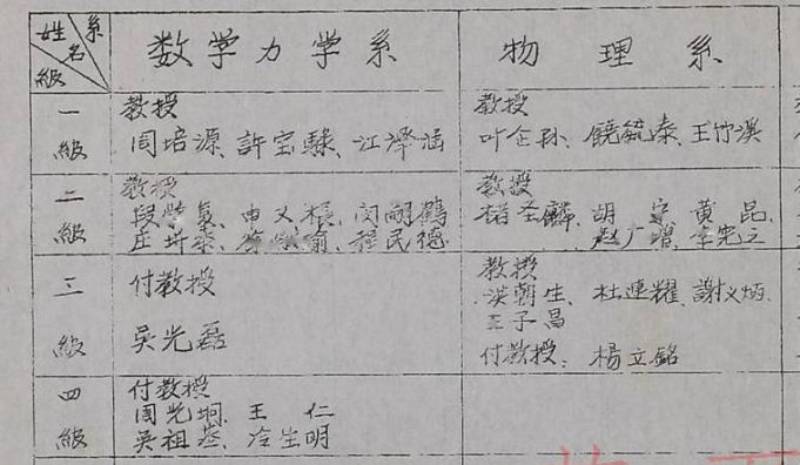 姓名 系
級
数学力学系
物理系
一級
教授
周培源、許宝騄、江泽涵
教授
叶企孙、饒毓泰、王竹溪
二級
教授
段学复、申又枨、闵嗣鶴
庄圻泰、徐献瑜、程民德
教授
褚圣麟、胡宁、黄昆、
赵广增、李宪之
三級
付教授
吴光磊
教授
洪朝生、杜連耀、謝义炳、
王子昌
付教授：楊立銘
四級
付教授
周光坰、王仁
吴祖基、冷生明